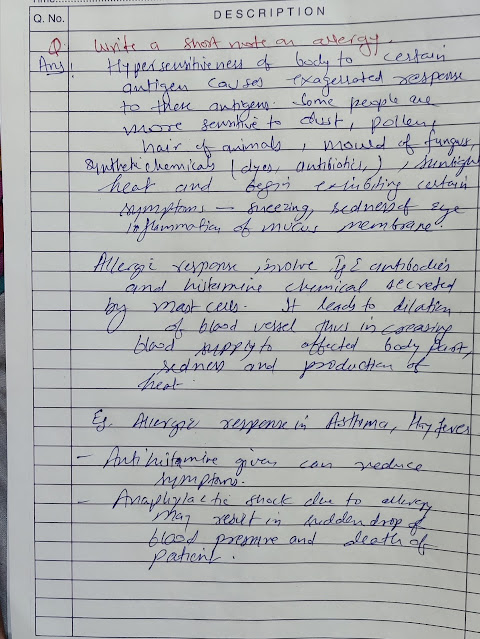 DESCRIPTION
Q. No.
Q. Write a short note on allergy.
Ans: Hypersensitiveness of body to certain
antigen causes exaggerated response
to these antigens. Some people are
more sensitive to dust, pollen,
hair of animals, mould of fungus,
synthetic chemicals (dyes, antibiotics,), sunlight
heat and begin exhibiting certain
symptoms - sneezing, redness of eye
inflammation of mucus membrane.
Allergic response involve IgE antibodies
and histamine chemical secreted
by mast cells. It leads to dilation
of blood vessel thus increasing
blood supply to affected body part,
redness and production of
heat.
Eg. Allergic response in Asthma, Hay fever
- Antihistamine given can reduce
symptoms.
- Anaphylactic shock due to allergy
may result in sudden drop of
blood pressure and death of
patient.